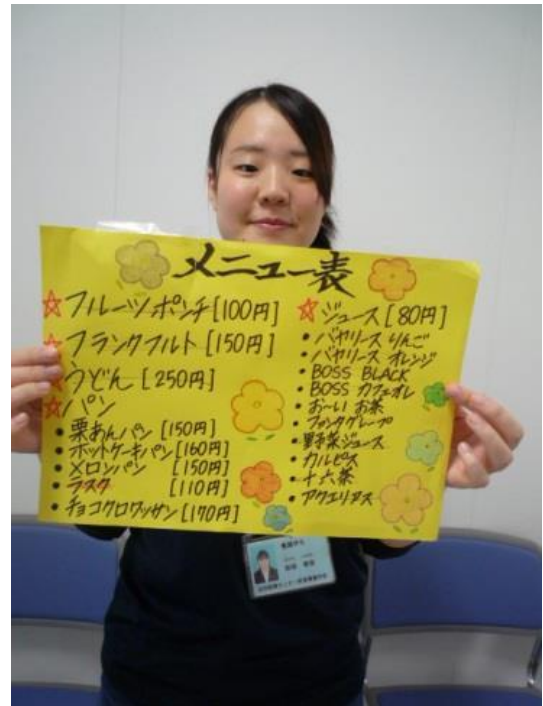 メニュー表
☆フルーツポンチ[100円]
☆フランクフルト[150円]
☆うどん[250円]
☆パン
・栗あんパン[150円]
・ホットケーキパン[160円]
・メロンパン[150円]
・ラスク[110円]
・チョコクロワッサン[170円]
☆ジュース[80円]
・バヤリース りんご
・バヤリース オレンジ
・BOSS BLACK
・BOSS カフェオレ
・お〜い お茶
・ファンタグレープ
・野菜ジュース
・カルピス
・十六茶
・アクエリアス